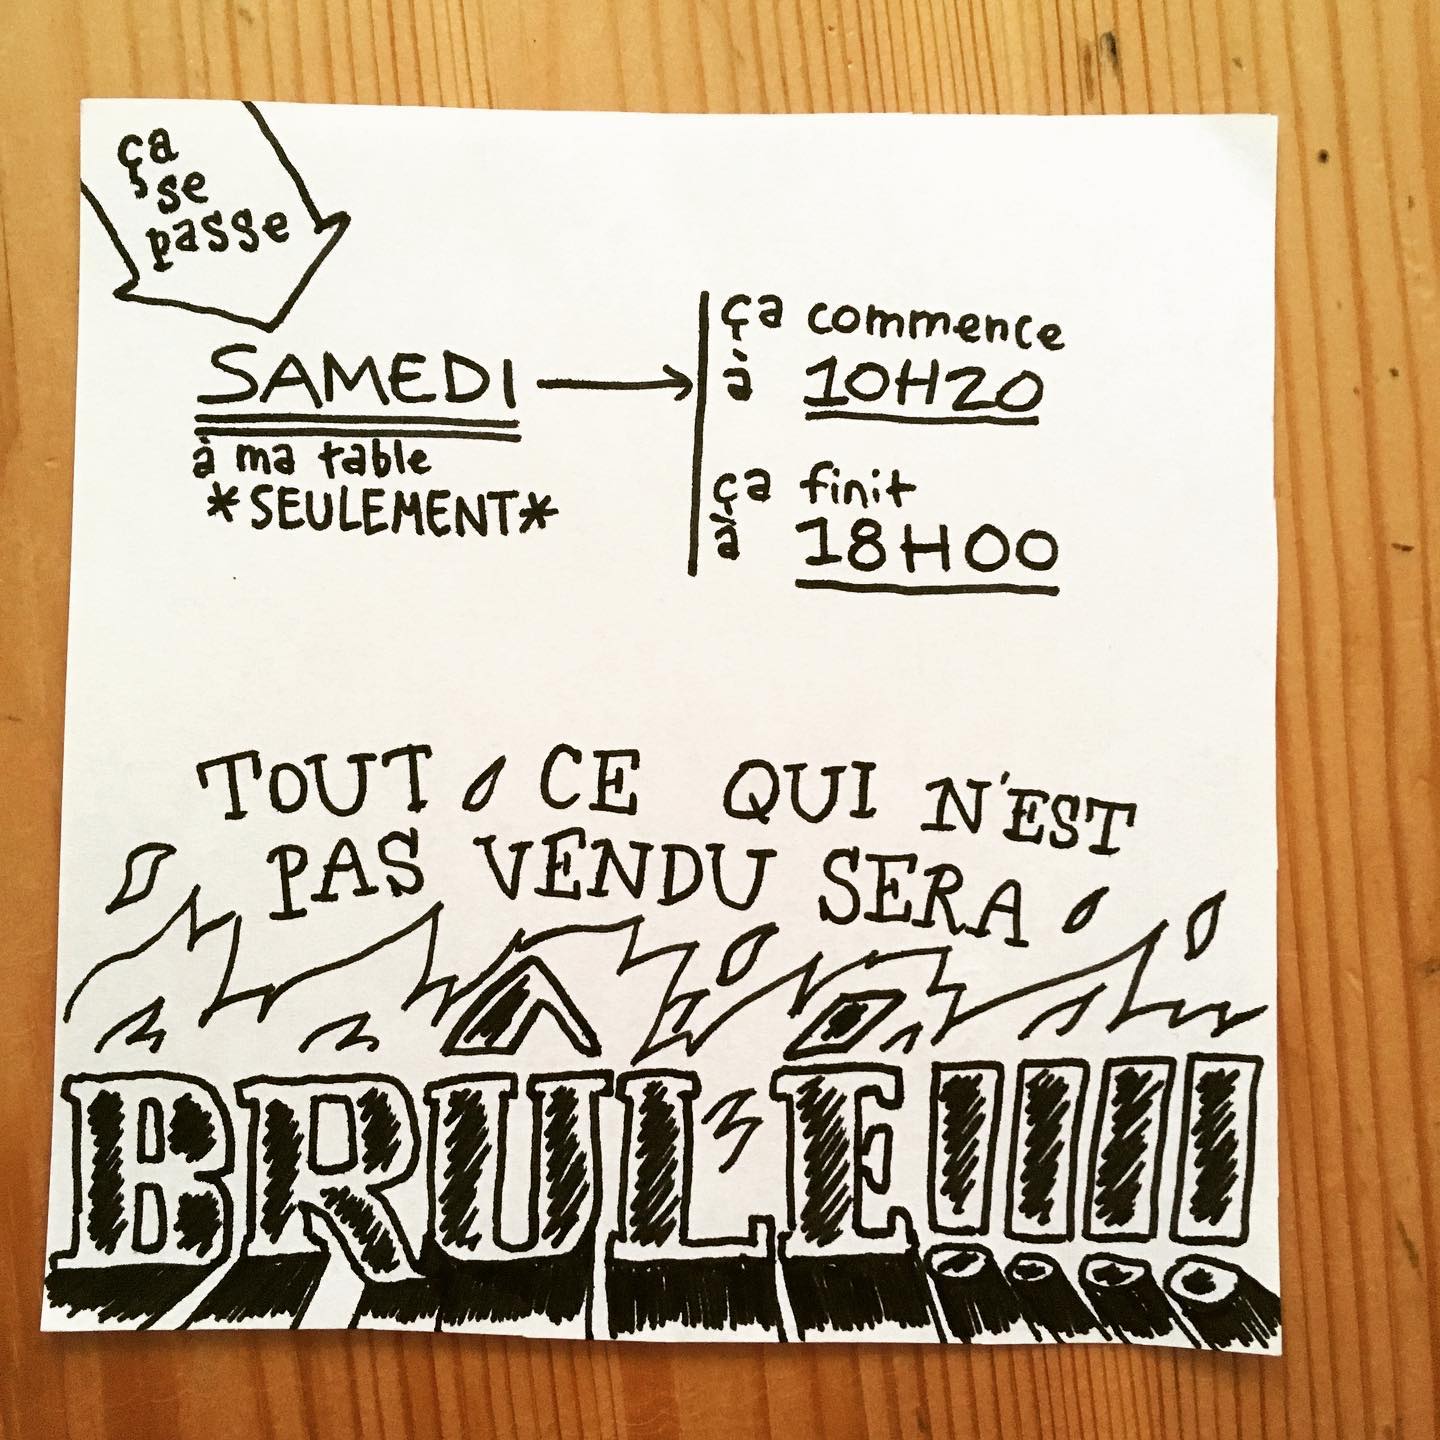 ça
se
passe
SAMEDI
à ma table
*SEULEMENT*
ça commence
à 10H20
ça finit
à 18H00
TOUT CE QUI N'EST
PAS VENDU SERA
BRÛLÉ!!!!